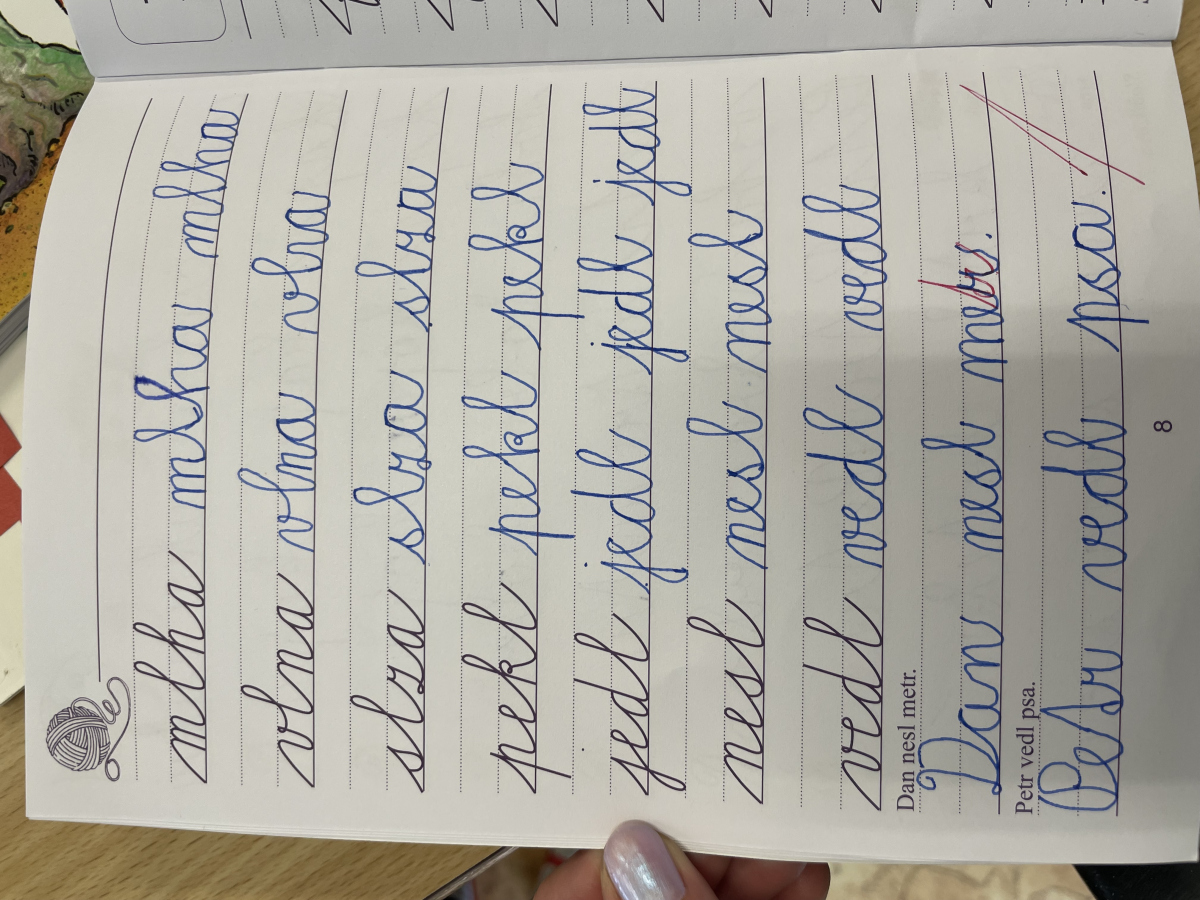 mlha mlha mlha
vlna vlna vlna
slza slza slza
pekl pekl pekl
jedl jedl jedl jedl
nesl nesl nesl
vedl vedl vedl
Dan nesl metr.
Dan nesl metr.
Petr vedl psa.
Petr vedl psa.
8